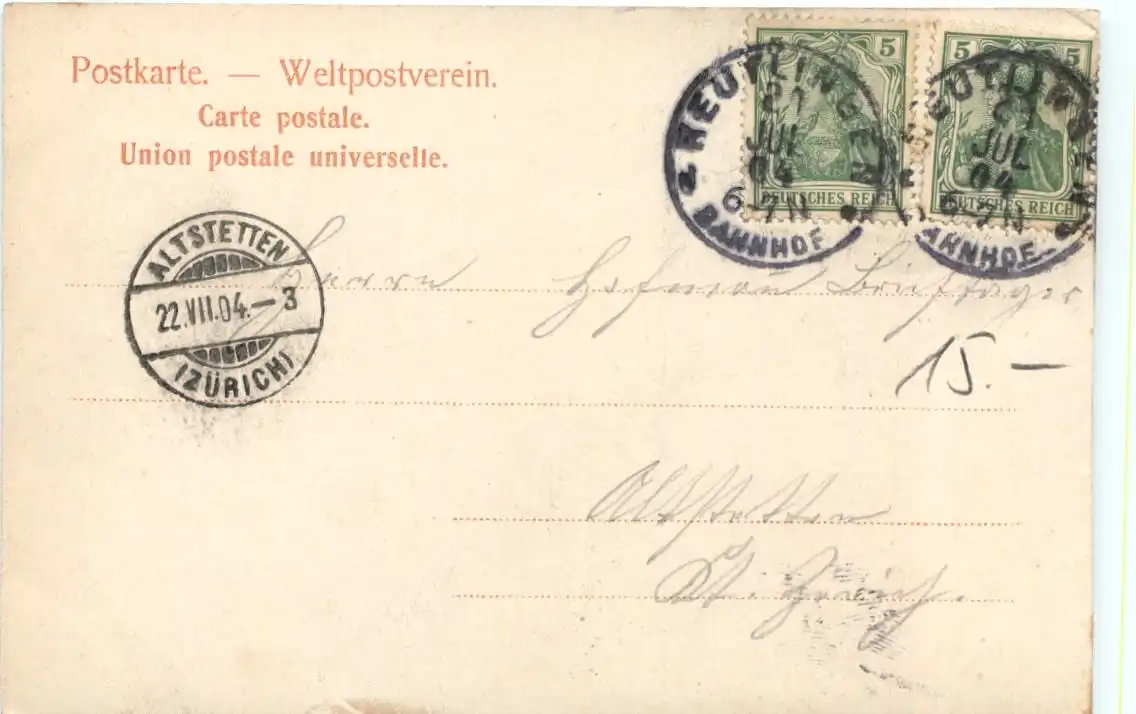 Postkarte. — Weltpostverein.
Carte postale.
Union postale universelle.
5 5
5 5
DEUTSCHES REICH
DEUTSCHES REICH
REUTLINGEN
21
JUL
04
6-7N
BAHNHOF
REUTLINGEN
21
JUL
04
6-7N
BAHNHOF
ALTSTETTEN
22.VII.04.–3
(ZÜRICH)
Herrn Hofmann Briefträger
15.—
Altstetten
Kt. Zürich.